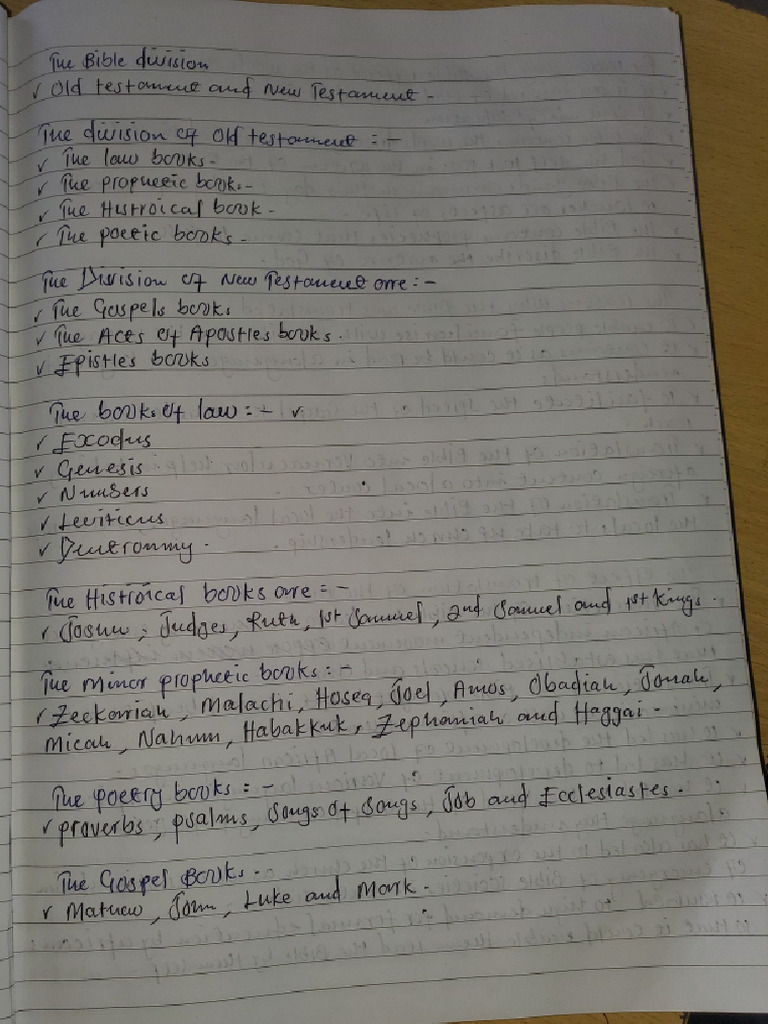 The Bible division
✓ Old testament and New Testament -
The division of Old testament :-
✓ The law books -
✓ The prophetic books -
✓ The Histroical book -
✓ The poetic books -
The Division of New Testament are :-
✓ The Gospels books
✓ The Acts of Apostles books .
✓ Epistles books
The books of law :- ✓
✓ Exodus
✓ Genesis
✓ Numbers
✓ Leviticus
✓ Deutronmy .
The Histroical books are :-
✓ Joshu , Judges, Ruth, 1st Samuel, 2nd Samuel and 1st Kings .
The Minor prophetic books :-
✓ Zeckariah , Malachi, Hosea, Joel, Amos, Obadiah, Jonah,
Micah, Nahum, Habakkuk, Zephaniah and Haggai -
The poetry books :-
✓ proverbs, psalms, Songs of Songs, Job and Ecclesiastes .
The Gospel Books -
✓ Mathew, John, Luke and Mark -